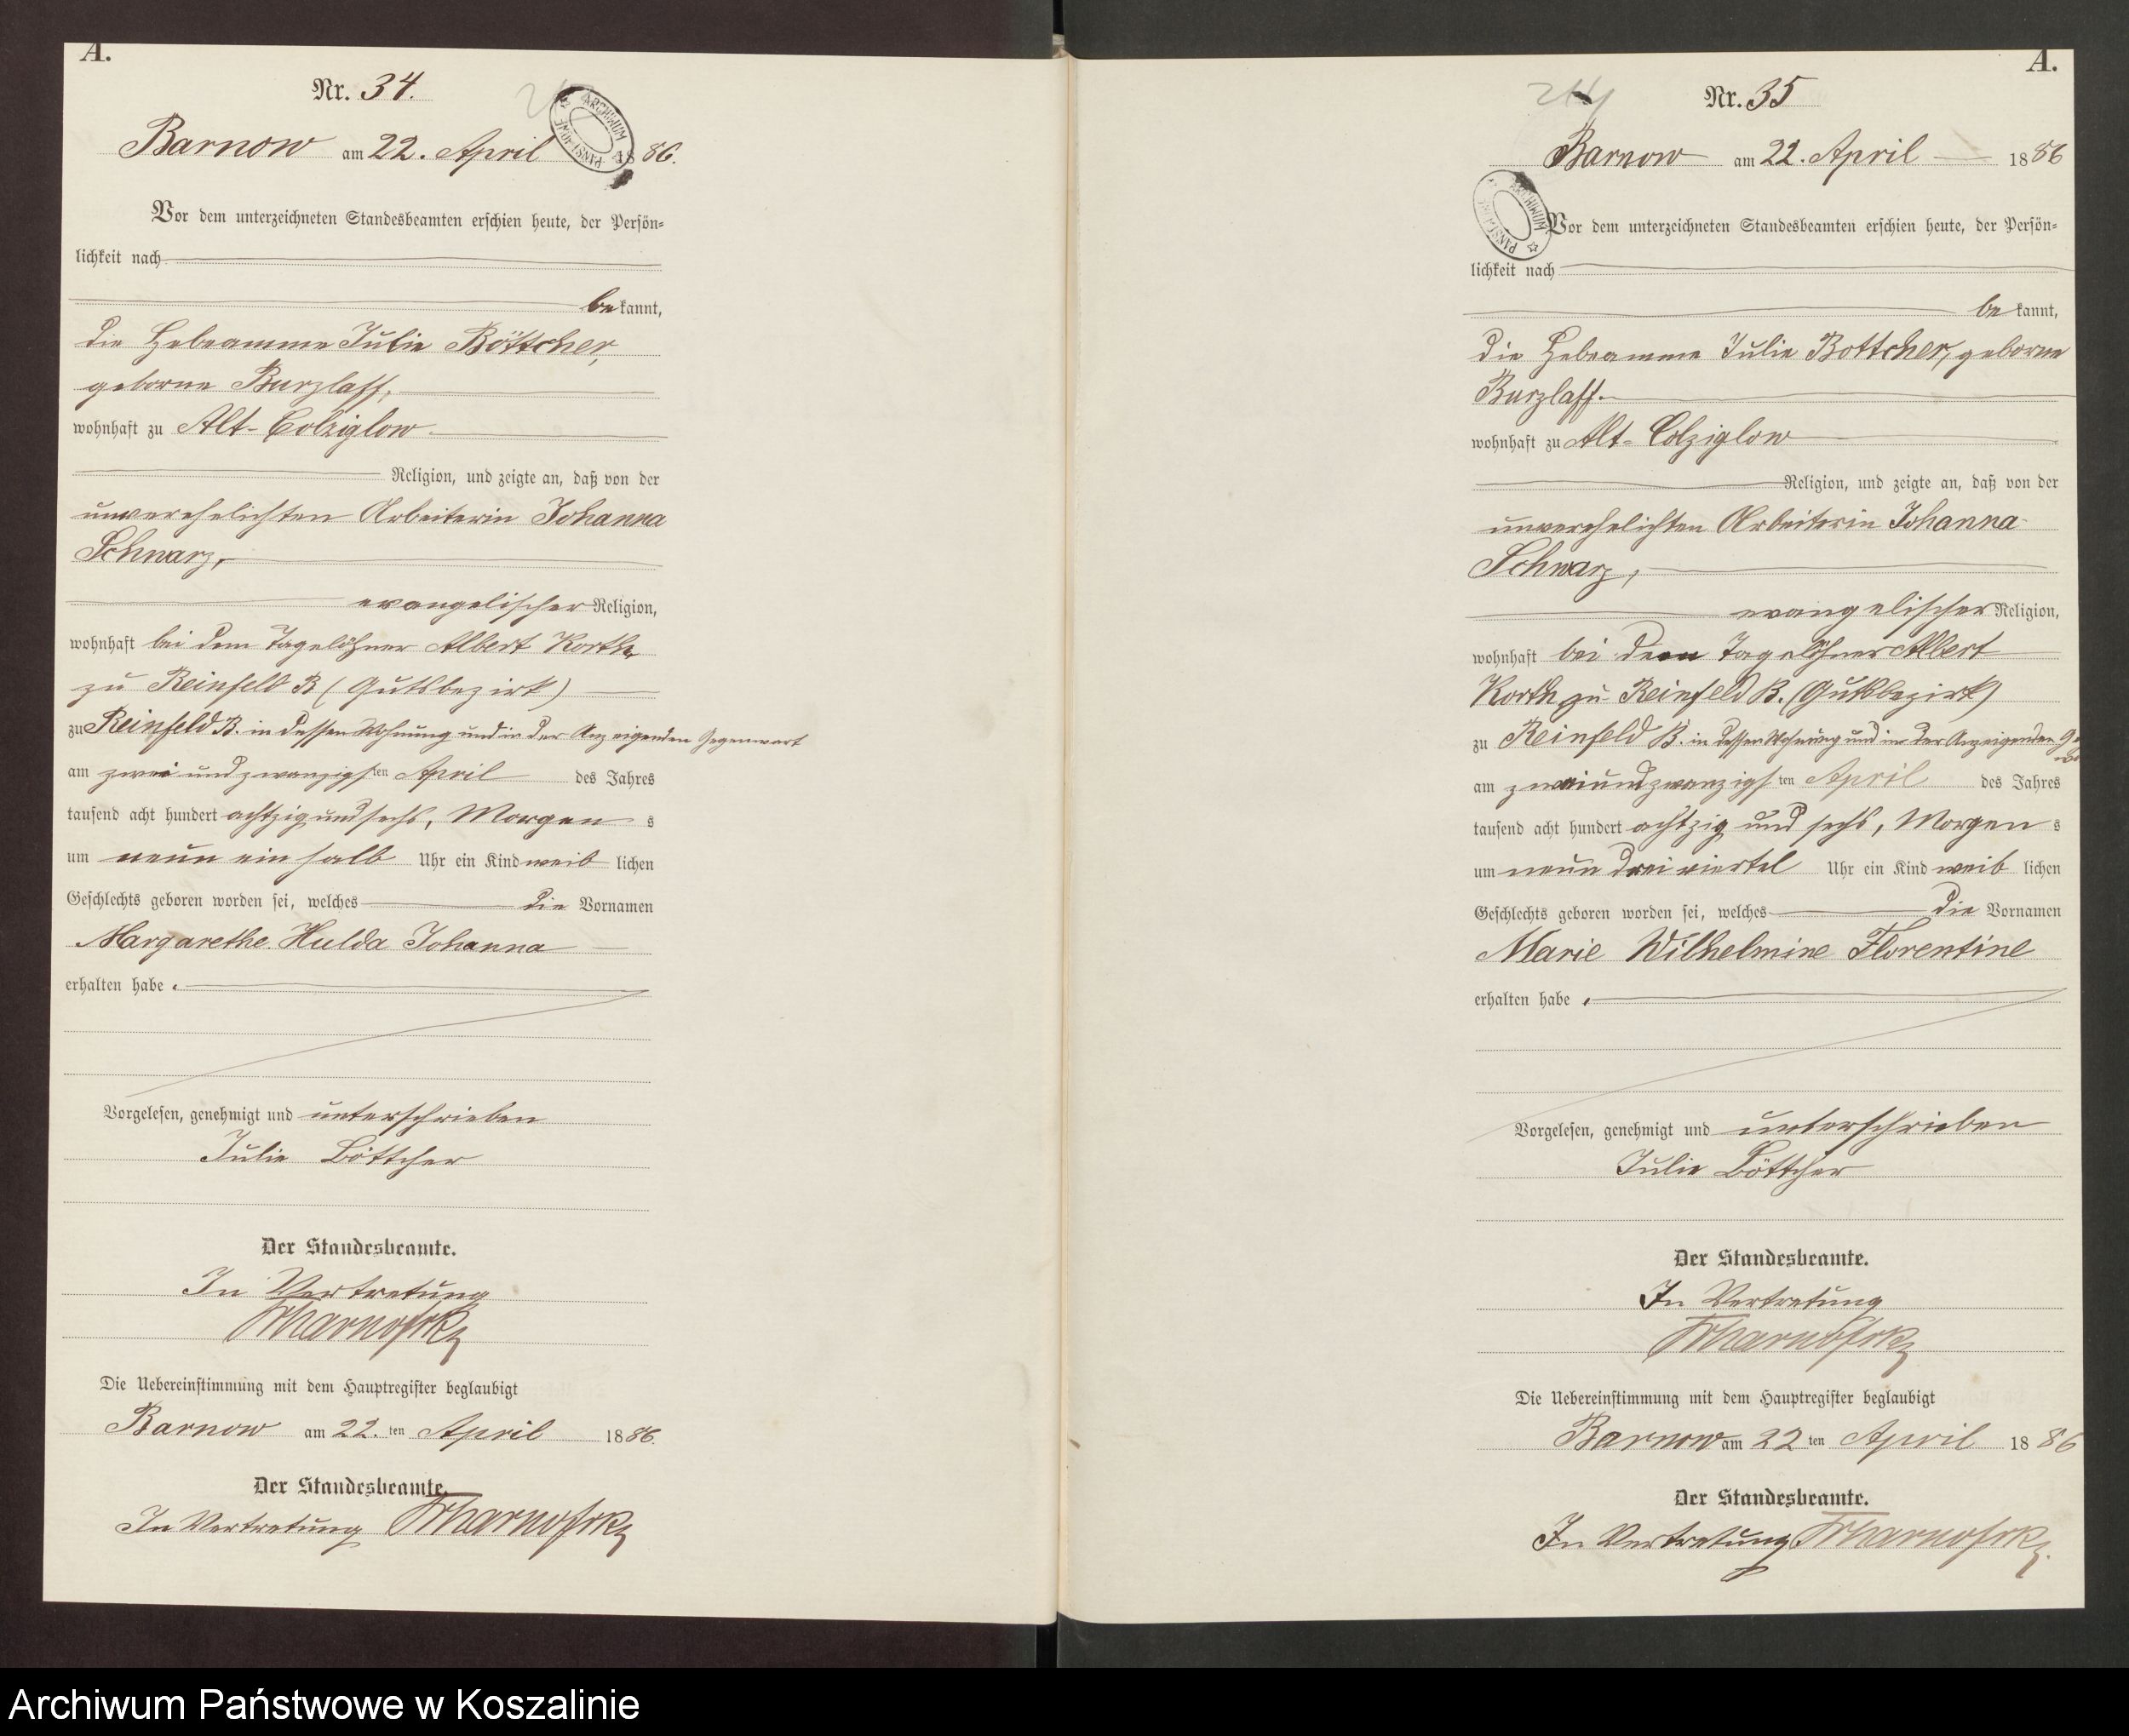 A.
Nr. 34.
Barnow am 22. April 1886.
Vor dem unterzeichneten Standesbeamten erschien heute, der Persön-
lichkeit nach
bekannt,
die Hebeamme Julie Böttcher,
geborne Burzlaff,
wohnhaft zu Alt-Colziglow
Religion, und zeigte an, daß von der
unverehelichten Arbeiterin Johanna
Schwarz,
evangelischer Religion,
wohnhaft bei dem Tagelöhner Albert Korth
zu Reinfeld B (Gutsbezirk)
zu Reinfeld B. in dessen Wohnung und in der Anzeigenden Gegenwart
am zwei und zwanzigsten April des Jahres
tausend acht hundert achtzig und sechs, Morgens
um neun ein halb Uhr ein Kind weiblichen
Geschlechts geboren worden sei, welches die Vornamen
Margarethe Hulda Johanna
erhalten habe.
Vorgelesen, genehmigt und unterschrieben
Julie Böttcher
Der Standesbeamte.
In Vertretung
Die Uebereinstimmung mit dem Hauptregister beglaubigt
Barnow am 22.ten April 1886.
Der Standesbeamte.
In Vertretung
A.
Nr. 35
Barnow am 22. April 1886
Vor dem unterzeichneten Standesbeamten erschien heute, der Persön-
lichkeit nach
bekannt,
die Hebeamme Julie Bottcher, geborne
Burzlaff.
wohnhaft zu Alt-Colziglow
Religion, und zeigte an, daß von der
unverehelichten Arbeiterin Johanna
Schwarz,
evangelischer Religion,
wohnhaft bei dem Tagelöhner Albert
Korth zu Reinfeld B. (Gutsbezirk)
zu Reinfeld B. in dessen Wohnung und in der Anzeigenden
am zweiundzwanzigsten April des Jahres
tausend acht hundert achtzig und sechs, Morgens
um neun drei viertel Uhr ein Kind weiblichen
Geschlechts geboren worden sei, welches die Vornamen
Marie Wilhelmine Florentine
erhalten habe.
Vorgelesen, genehmigt und unterschrieben
Julie Böttcher
Der Standesbeamte.
In Vertretung
Die Uebereinstimmung mit dem Hauptregister beglaubigt
Barnow am 22ten April 1886
Der Standesbeamte.
In Vertretung
Archiwum Państwowe w Koszalinie